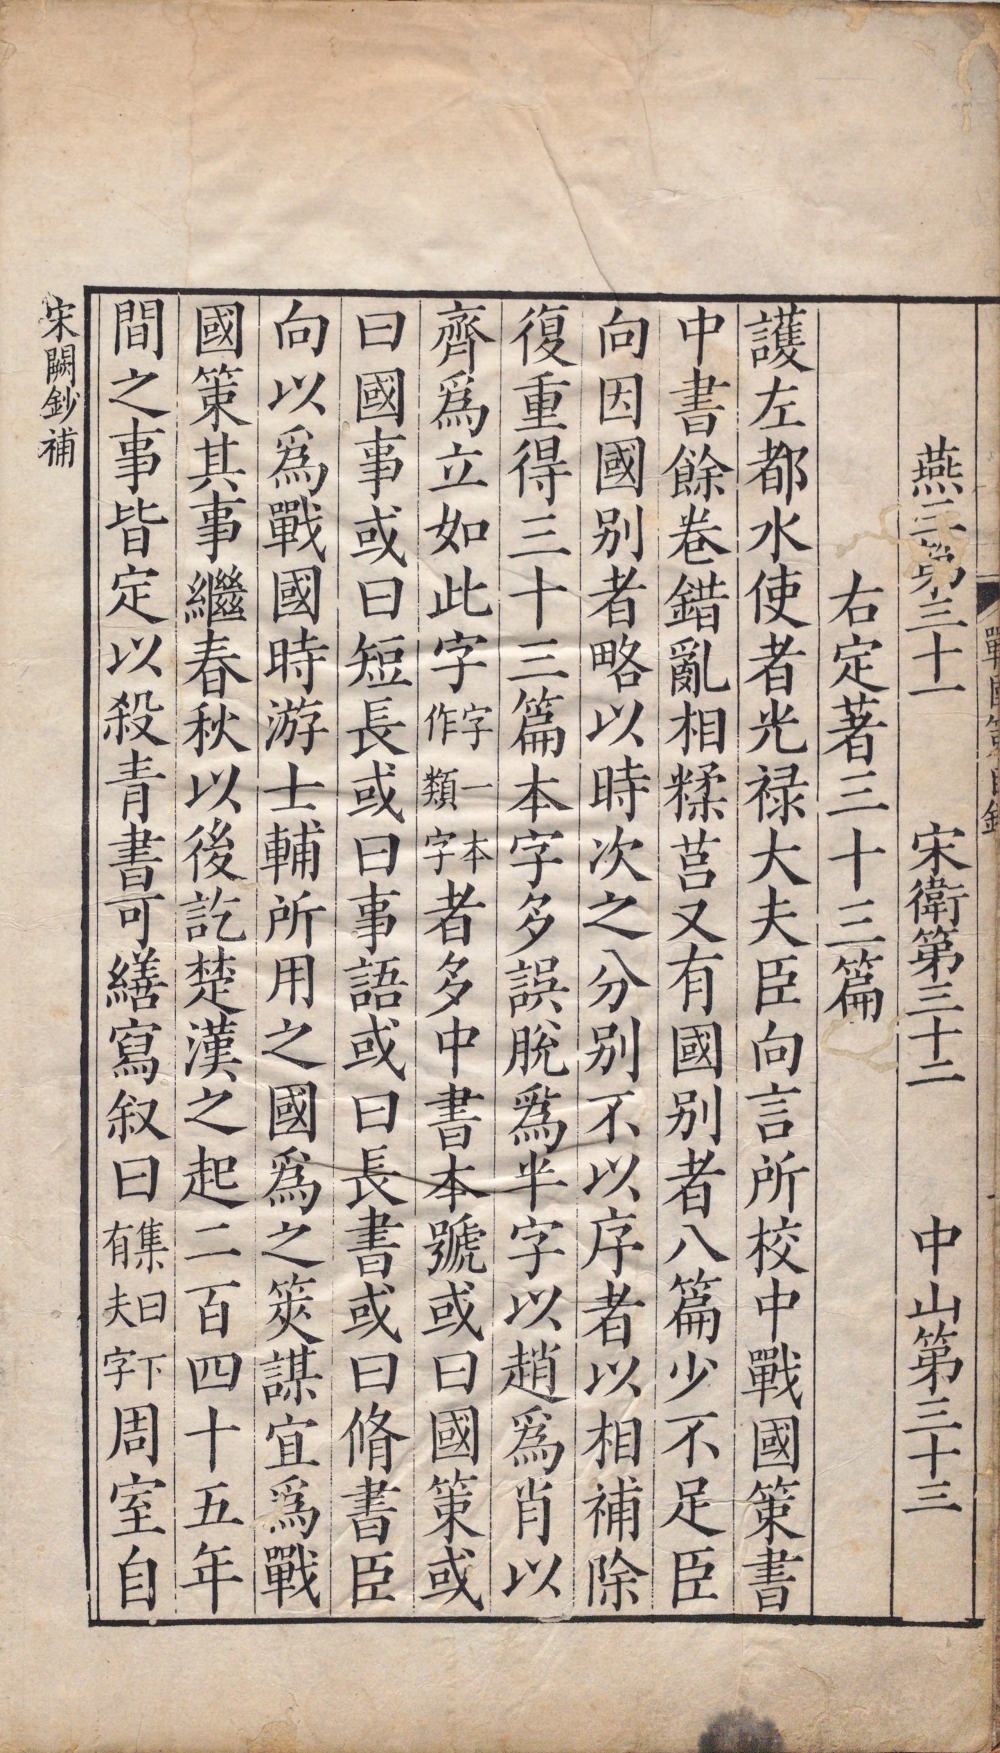 戰國策目錄
燕三第三十一　宋衛第三十二　中山第三十三
右定著三十三篇
護左都水使者光禄大夫臣向言所校中戰國策書
中書餘卷錯亂相糅莒又有國别者八篇少不足臣
向因國别者略以時次之分别不以序者以相補除
復重得三十三篇本字多誤脫爲半字以趙爲肖以
齊爲立如此字字一本作類字者多中書本號或曰國策或
曰國事或曰短長或曰事語或曰長書或曰脩書臣
向以爲戰國時游士輔所用之國爲之筴謀宜爲戰
國策其事繼春秋以後訖楚漢之起二百四十五年
間之事皆定以殺青書可繕寫叙曰集曰下有夫字周室自
宋闕鈔補